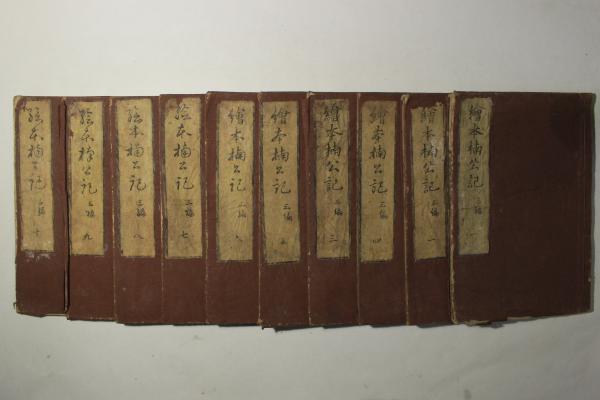 繪本楠公記 三編 一
繪本楠公記 三編
繪本楠公記 三編 四
繪本楠公記 三編 三
繪本楠公記 三編 五
繪本楠公記 三編 六
絵本楠公記 三編 七
絵本楠公記 三編 八
絵本楠公記 三編 九
絵本楠公記 三編 十